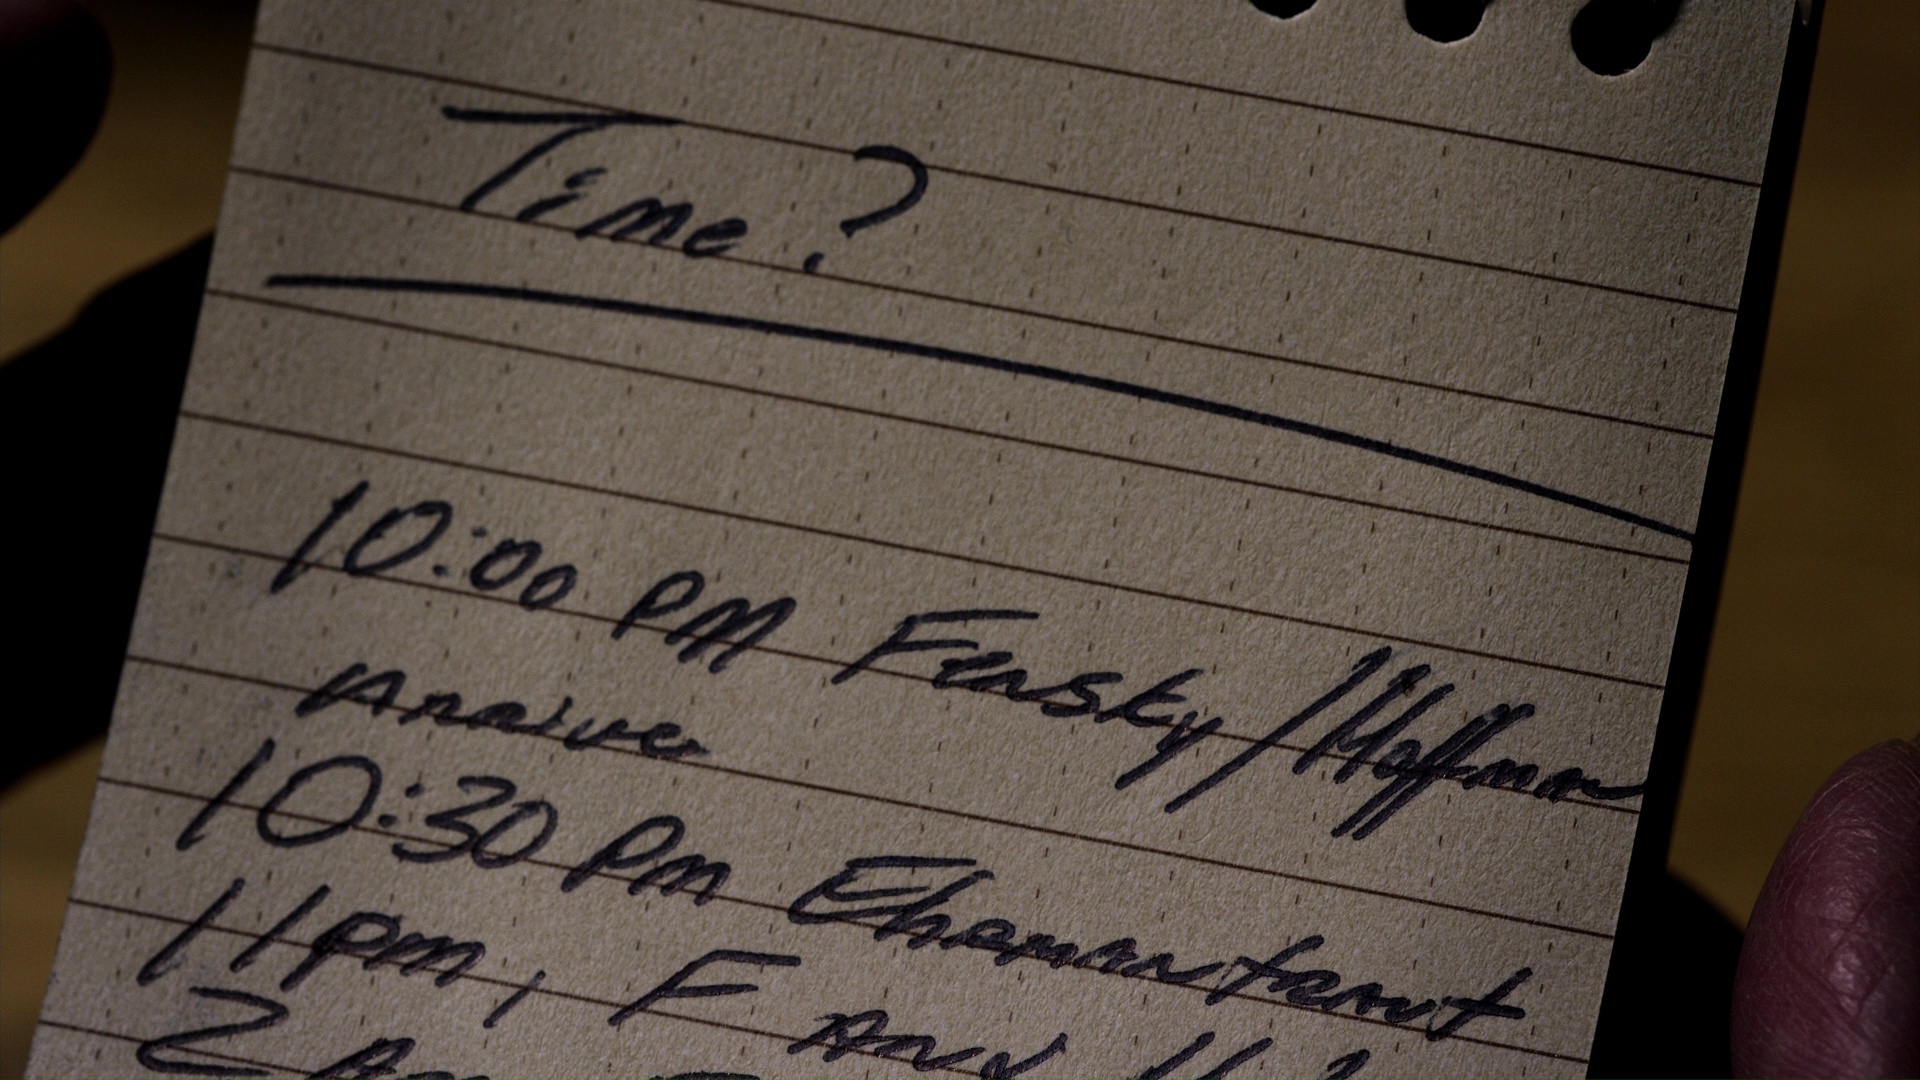 Time?
10:00 PM Fensky/Hoffman
Arrive
10:30 PM Ehrmantraut
11 PM, F And H
2 AM